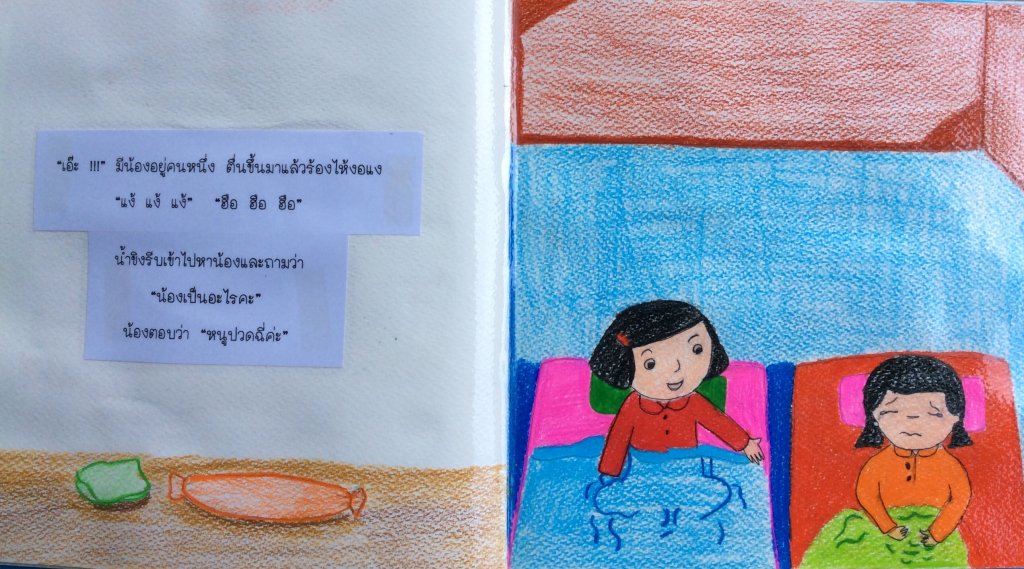 “เอ๊ะ !!!” มีน้องอยู่คนหนึ่ง ตื่นขึ้นมาแล้วร้องไห้งอแง
“แง้ แง้ แง้” “ฮือ ฮือ ฮือ”
น้ำขิงรีบเข้าไปหาน้องและถามว่า
“น้องเป็นอะไรคะ”
น้องตอบว่า “หนูปวดฉี่ค่ะ”